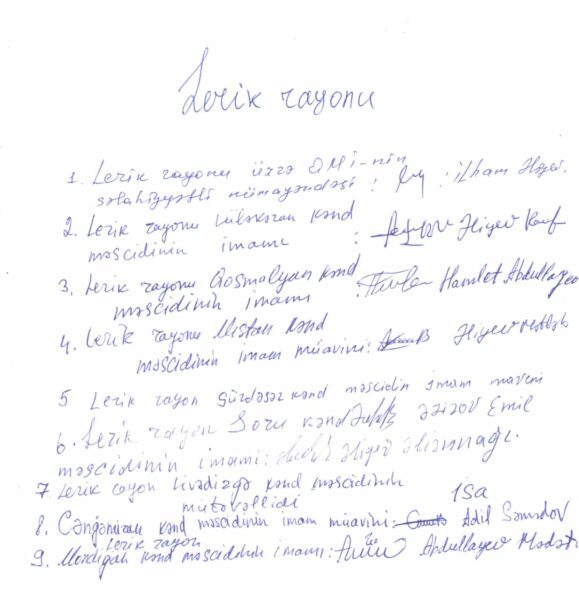 Lerik rayonu
1. Lerik rayonu üzrə QMİ-nin
səlahiyyətli nümayəndəsi : : İlham Əliyev.
2. Lerik rayonu Lüləkəran kənd
məscidinin imamı : Əliyev Rauf
3. Lerik rayonu Qosmalyan kənd
məscidinin imamı : Hamlet Abdullayev
4. Lerik rayonu Mistan kənd
məscidinin imam müavini: Əliyev
5 Lerik rayon kənd məscidin imam maveni
6. Lerik rayon Soru kənd Əzizov Emil
məscidinin imami: Əliyev Əliannağı.
7 Lerik rayon Livədirgə kənd məscidinin
mütəvəllidi İSa
8. Cəngəmiran kənd məscidinin imam müavini: Adil Səmədov
Lerik rayon
9. Mondigah kənd məscidinin imamı: Abdullayev